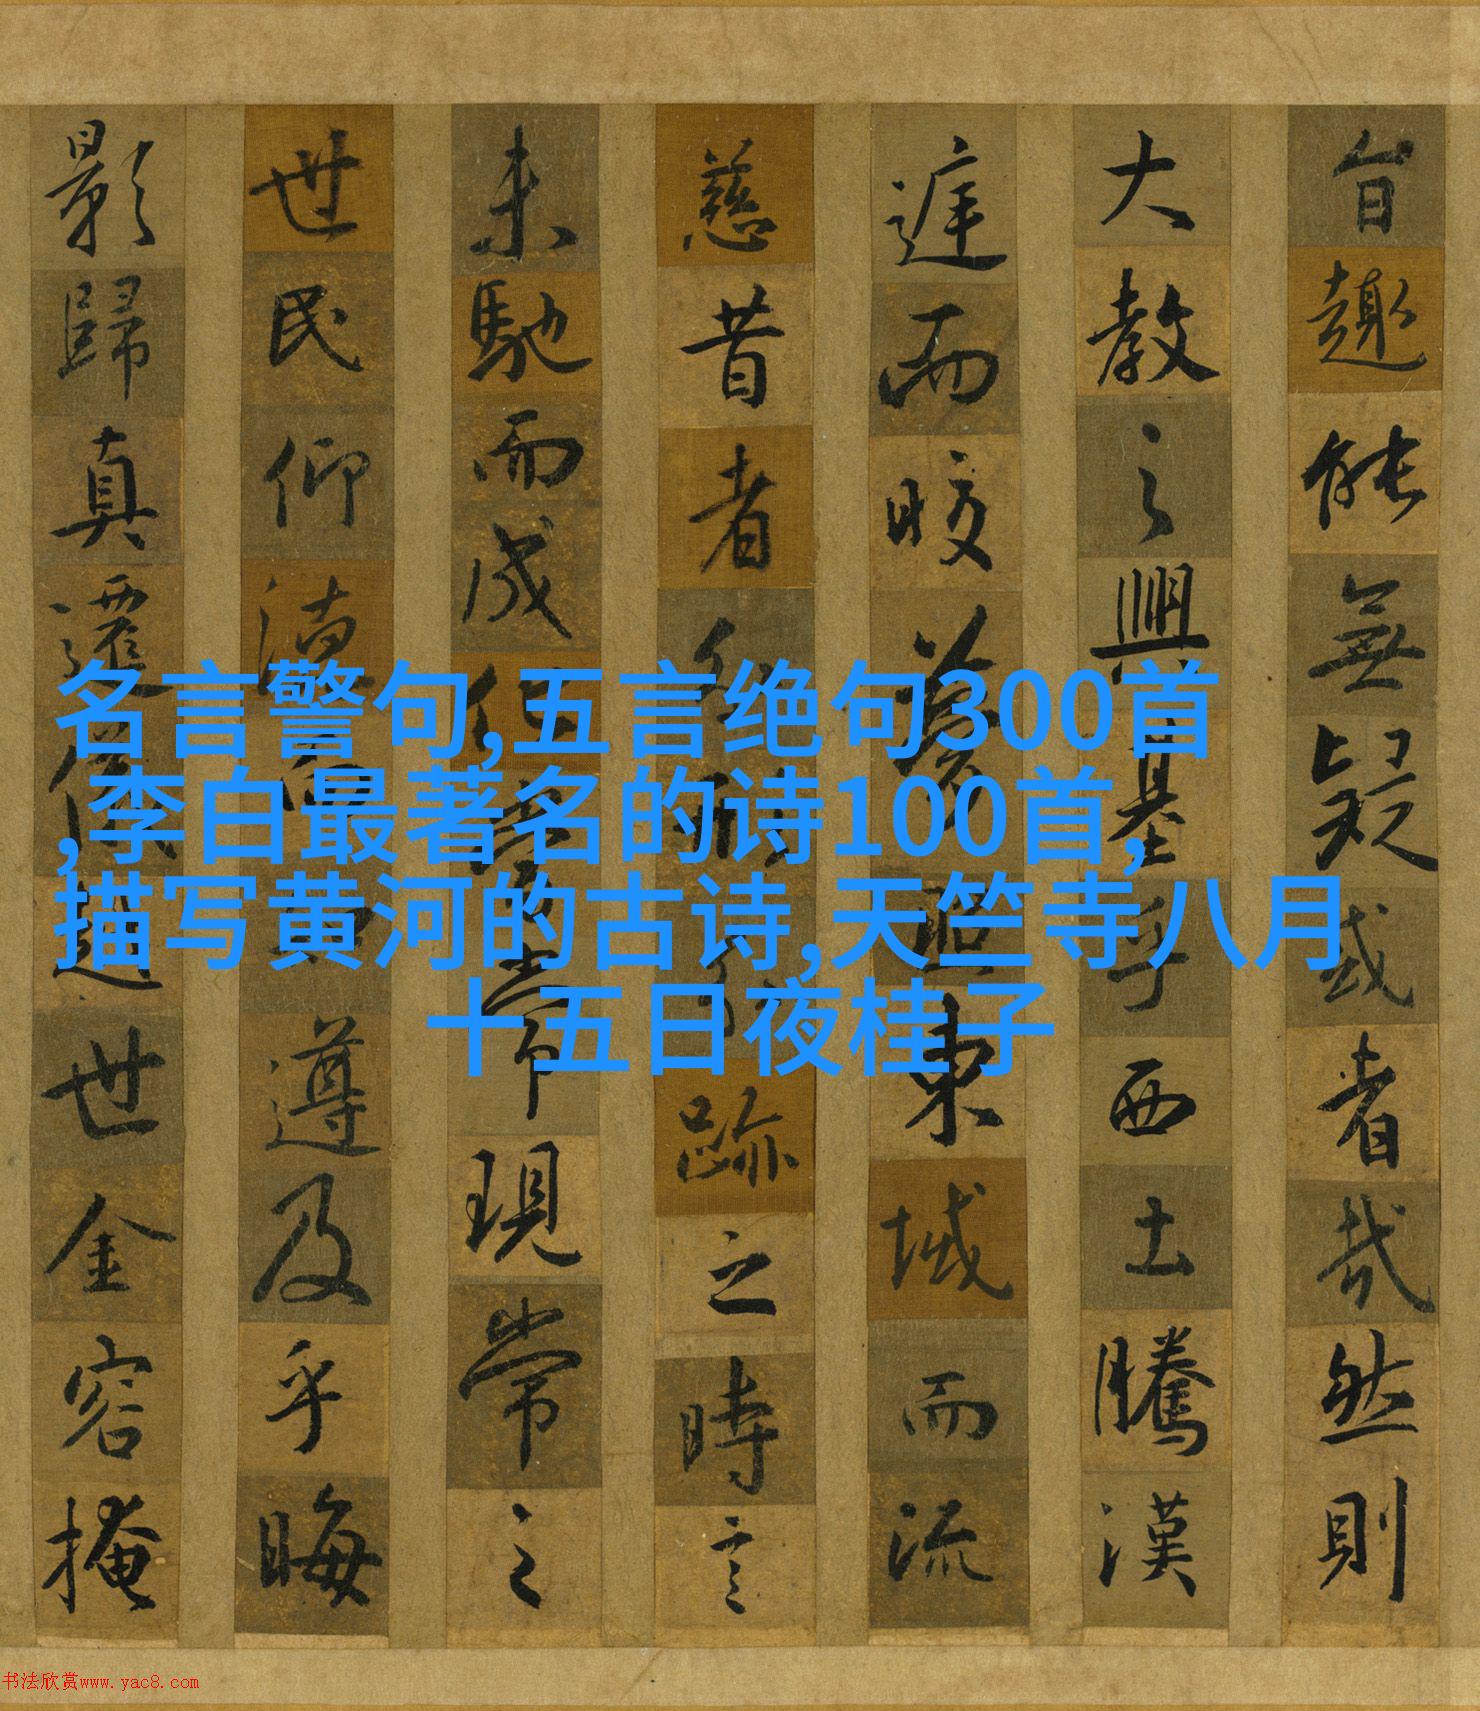 旨趣能無疑或者哉然則
大教之興基乎西土騰漢
庭而皎夢照東域而流
慈昔者分形分跡之時言
未馳而成化當常現常之
世民仰德而知遵及乎晦
影歸真遷儀越世金容掩
名言警句,五言绝句300首
,李白最著名的诗100首,
描写黄河的古诗,天竺寺八月
十五日夜桂子
书法欣赏www.yac8.com